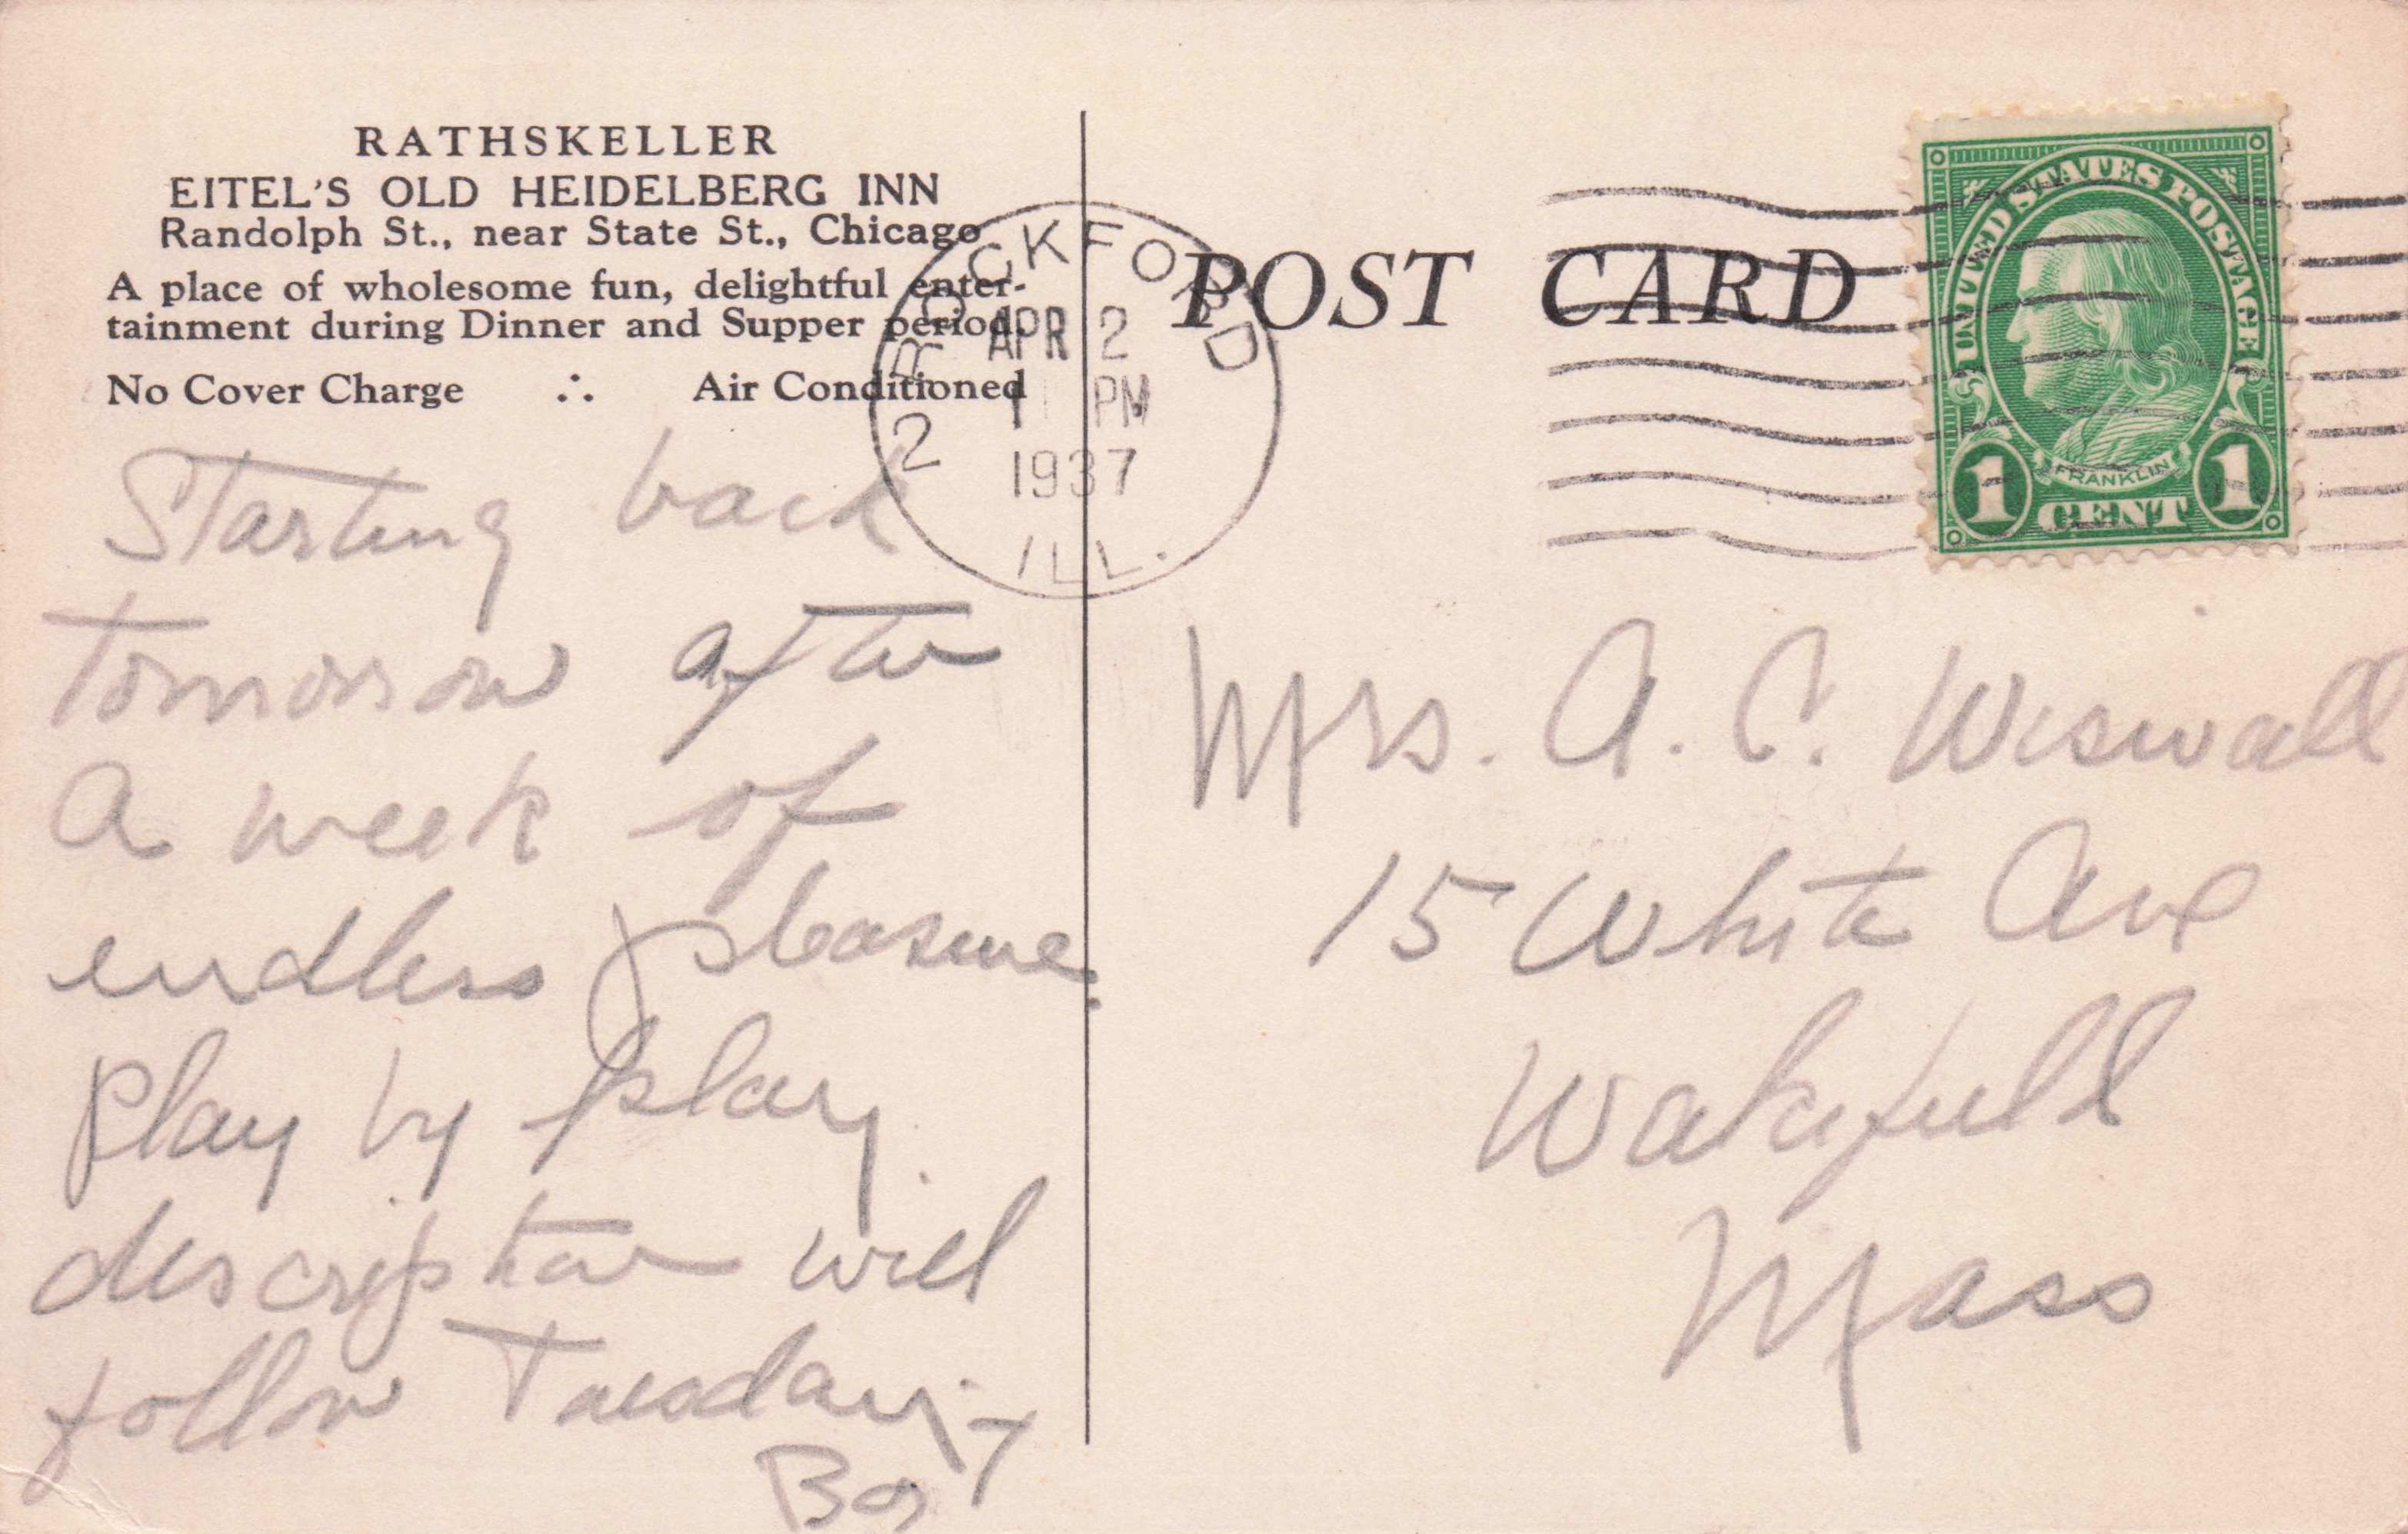 RATHSKELLER
EITEL'S OLD HEIDELBERG INN
Randolph St., near State St., Chicago
A place of wholesome fun, delightful enter-
tainment during Dinner and Supper period.
No Cover Charge ∴ Air Conditioned
Starting back
tomorrow after
a week of
endless pleasure.
Play by play
description will
follow Tuesday.
ROCKFORD
APR 2
PM
1937
2
ILL.
POST CARD
UNITED STATES POSTAGE
FRANKLIN
1 CENT 1
Mrs. A. C. Wiswall
15 White Ave
Wakefield
Mass